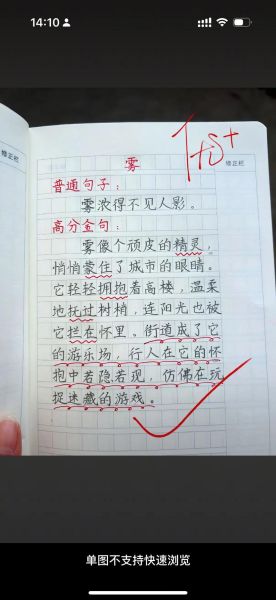 14:10
修正栏
优+
修正栏
雾
普通句子：
雾浓得不见人影。
高分金句：
雾像个顽皮的精灵，
悄悄蒙住了城市的眼睛。
它轻轻拥抱着高楼，温柔
地抚过树梢，连阳光也被
它拦在怀里。街道成了它
的游乐场，行人在它的怀
抱中若隐若现，仿佛在玩
捉迷藏的游戏。
单图不支持快速浏览